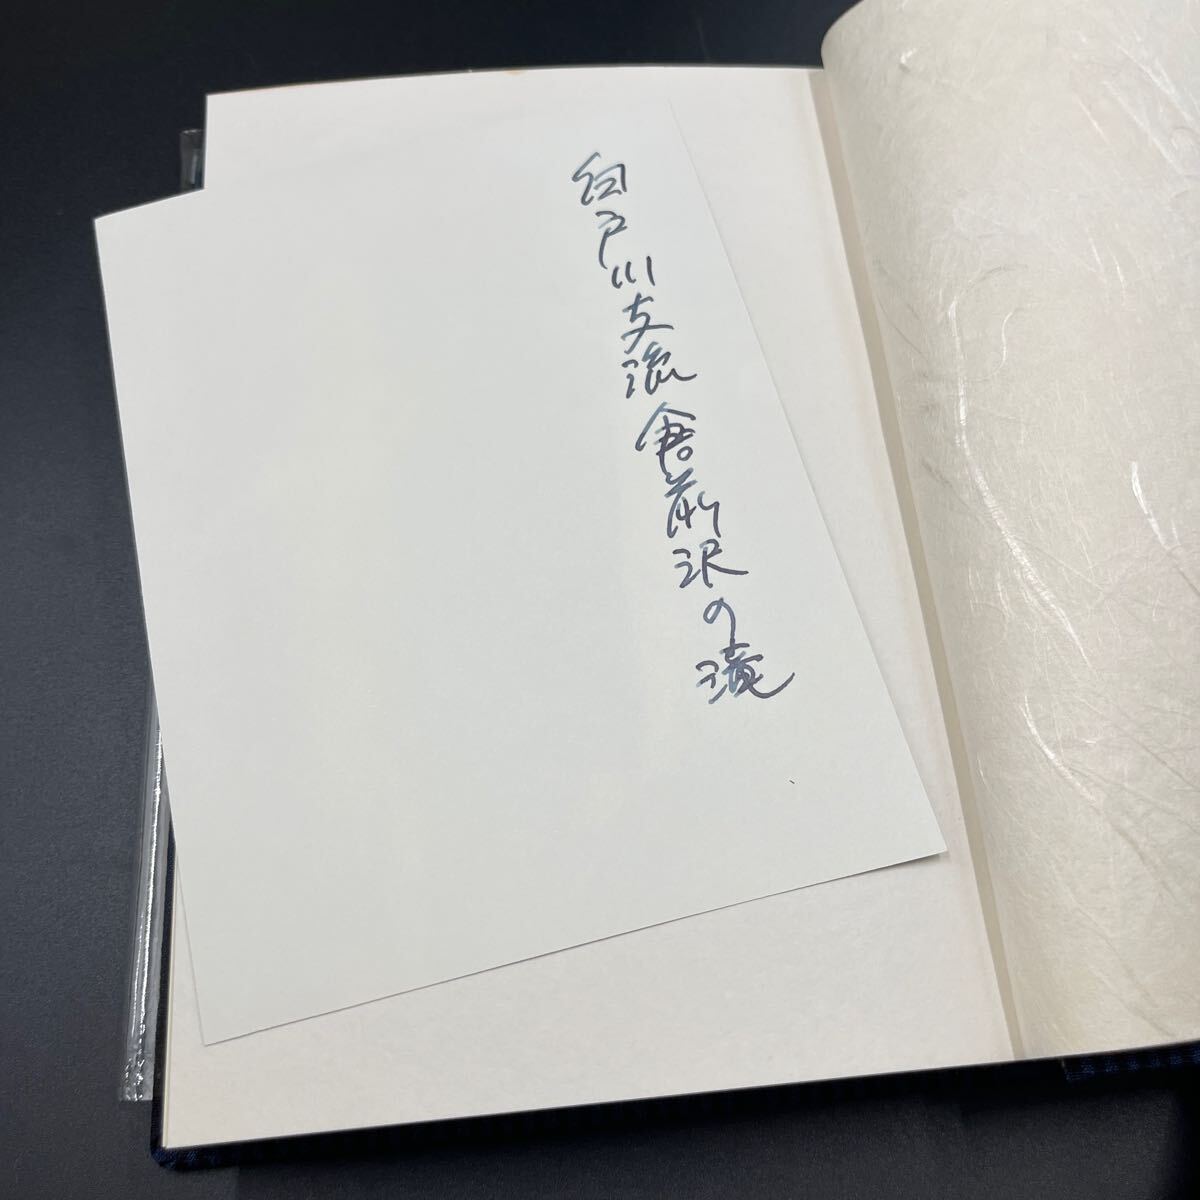 白戸川支流倉前沢の滝